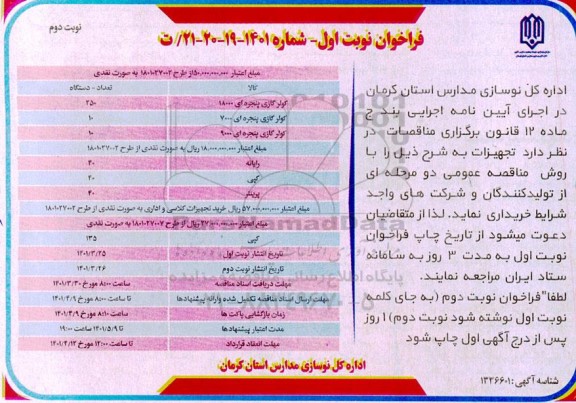 نوبت دوم
فراخوان نوبت اول- شماره ۱۴۰۱-۱۹-۲۰-۲۱/ ت
اداره کل نوسازی مدارس استان کرمان
در اجرای آیین نامه اجرایی بند ج
ماده ۱۲ قانون برگزاری مناقصات در
نظر دارد تجهیزات به شرح ذیل را با
روش مناقصه عمومی دو مرحله ای
از تولیدکنندگان و شرکت های واجد
شرایط خریداری نماید. لذا از متقاضیان
دعوت میشود از تاریخ چاپ فراخوان
نوبت اول به مدت ۳ روز به سامانه
ستاد ایران مراجعه نمایند.
لطفا"فراخوان نوبت دوم (به جای کلمه
نوبت اول نوشته شود نوبت دوم) ۱ روز
پس از درج آگهی اول چاپ شود
شناسه آگهی: ۱۳۲۶۶۰۱
مبلغ اعتبار ۵۰,۰۰۰,۰۰۰,۰۰۰ از طرح ۱۸۰۱۰۲۷۰۰۲ به صورت نقدی
کالا تعداد - دستگاه
کولر گازی پنجره ای ۱۸۰۰۰ ۲۵۰
کولر گازی پنجره ای ۷۰۰۰ ۱۰
کولر گازی پنجره ای ۹۰۰۰ ۱۰
مبلغ اعتبار ۱۸,۰۰۰,۰۰۰,۰۰۰ ریال به صورت نقدی از طرح ۱۸۰۱۰۲۷۰۰۲
رایانه ۲۰
کپی ۲۰
پرینتر ۴۰
مبلغ اعتبار ۵۷,۰۰۰,۰۰۰,۰۰۰ ریال خرید تجهیزات کلاسی و اداری به صورت نقدی از طرح ۱۸۰۱۰۲۷۰۰۲
مبلغ اعتبار ۴۷,۰۰۰,۰۰۰,۰۰۰ ریال از طرح ۱۸۰۱۰۲۷۰۰۷ به صورت نقدی
کپی ۱۳۵
تاریخ انتشار نوبت اول ۱۴۰۱/۳/۲۵
تاریخ انتشار نوبت دوم ۱۴۰۱/۳/۲۶
مهلت دریافت اسناد مناقصه ساعت ۸:۰۰ مورخ ۱۴۰۱/۳/۳۰
مهلت ارسال اسناد مناقصه تکمیل شده و ارائه پیشنهادها تا ساعت ۸:۰۰ مورخ ۱۴۰۱/۴/۹
زمان بازگشایی پاکت ها ساعت ۸:۱۰ مورخ ۱۴۰۱/۴/۹
مدت اعتبار پیشنهادها تا ۱۴۰۱/۵/۹ ساعت ۱۹:۰۰
مهلت انعقاد قرارداد تا ساعت ۱۲:۰۰ مورخ ۱۴۰۱/۴/۱۲
اداره کل نوسازی مدارس استان کرمان